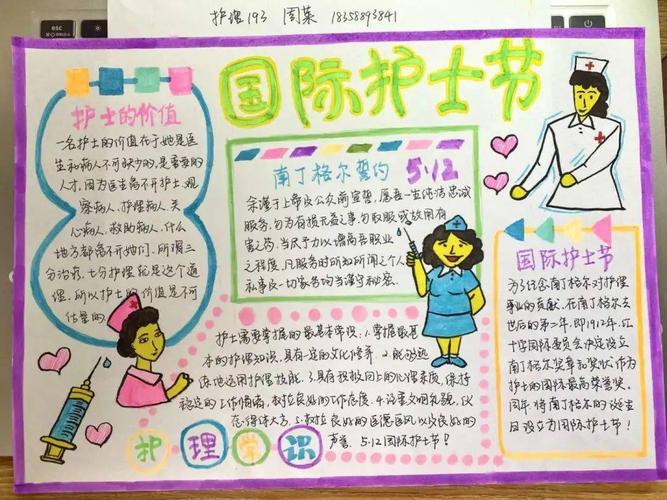 护理193 周菜 18358893841
esc
国际护士节
护士的价值
一名护士的价值在于她是医
生和病人不可缺少的,是重要的
人才,因为医生离不开护士,观
察病人,护理病人,关
心病人,救助病人,什么
地方都离不开她们,所谓三
分治疗,七分护理就是这个道
理,所以护士的价值是不可
估量的。
南丁格尔誓约 5.12
余谨于上帝及公众前宣誓,愿吾一生纯洁忠诚
服务,勿为有损无益之事,勿取服或故用有
害之药,当尽予力以增高吾职业
之程度,凡服务时所知所闻之个人
私事及一切家务均当谨守秘密.
国际护士节
为了纪念南丁格尔对护理
事业的贡献,在南丁格尔去
世后的第二年,即1912年,红
十字国际委员会决定设立
南丁格尔奖章和奖状作为
护士的国际最高荣誉奖
同年,将南丁格尔的诞生
日设立为国际护士节!
护士需要掌握的最基本常识:1.掌握最基
本的护理知识,具有一定的文化修养.2.能够熟
练地运用护理技能.3.具有积极向上的心理素质,保持
稳定的工作情绪,树立良好的工作态度.4.语言文明礼貌,仪
态得体大方.5.树立良好的医德医风以及良好的
声誉.5.12国际护士节!
护理常识